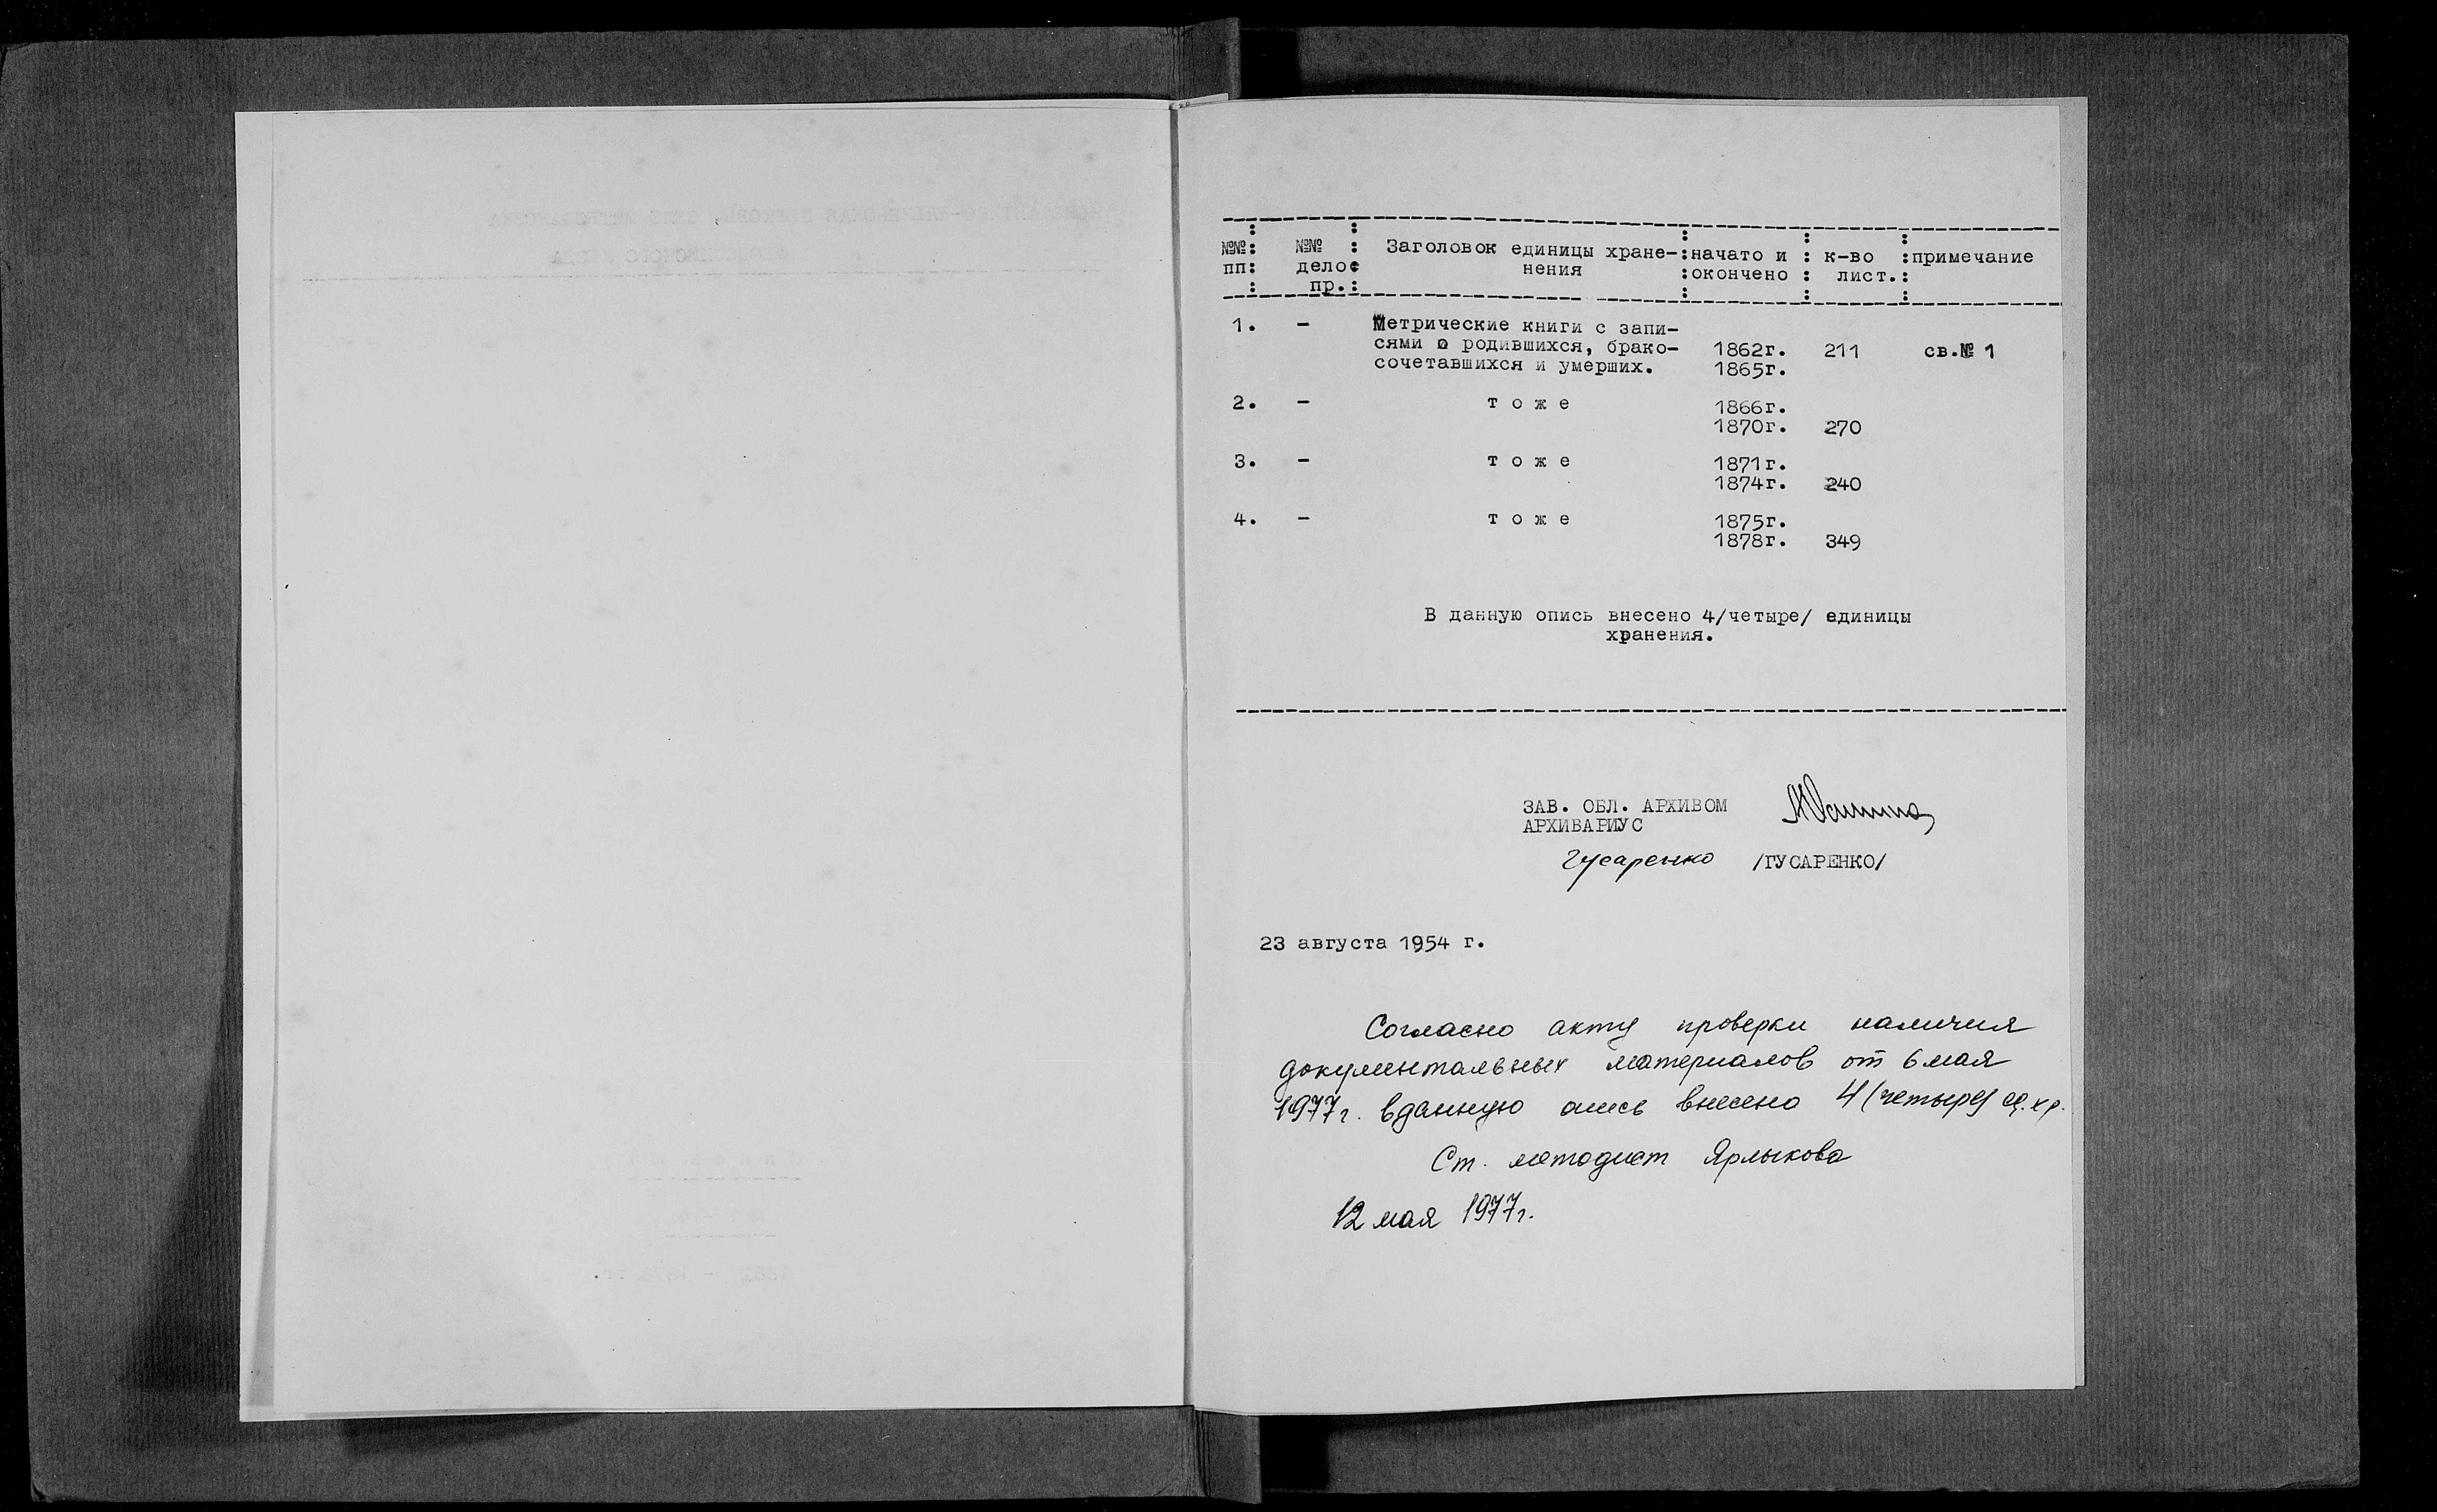 №№ : №№ : Заголовок единицы хране- : начато и : к-во : примечание
пп : дело : нения : окончено : лист. :
: пр. : : : :
1. - Метрические книги с запи-
сями о родившихся, брако- 1862г. 211 св.№ 1
сочетавшихся и умерших. 1865г.
2. - т о ж е 1866г.
1870г. 270
3. - т о ж е 1871г.
1874г. 240
4. - т о ж е 1875г.
1878г. 349
В данную опись внесено 4/четыре/ единицы
хранения.
ЗАВ. ОБЛ. АРХИВОМ
АРХИВАРИУС
Гусаренко /ГУСАРЕНКО/
23 августа 1954 г.
Согласно акту проверки наличия
документальных материалов от 6 мая
1977г. в данную опись внесено 4 (четыре) ед. хр.
Ст. методист Ярлыкова
12 мая 1977г.